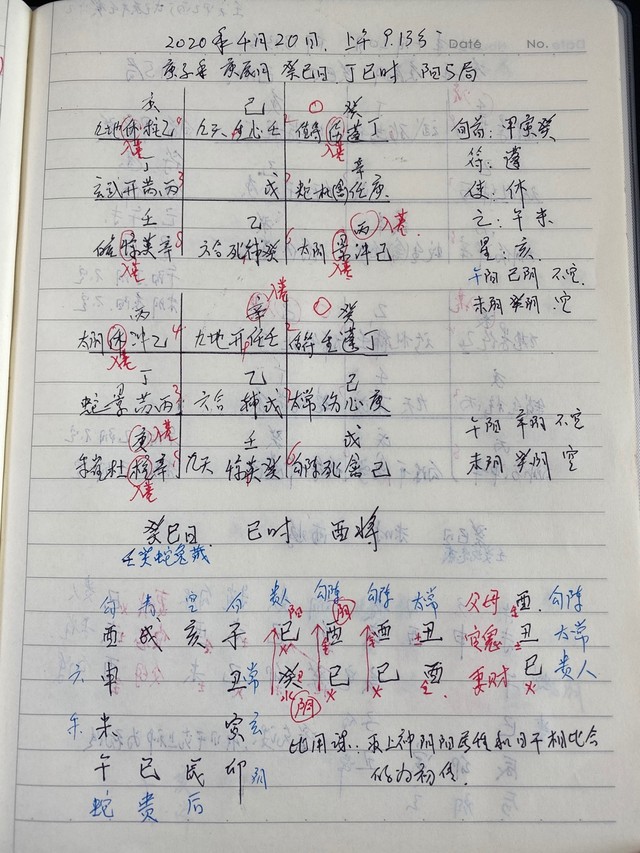 2020年4月20日. 上午9.13分
Date No.
庚子年 庚辰月 癸巳日 丁巳时 阳5局
亥 己 癸
九地休柱乙 九天生心壬 值符伤蓬丁 旬首:甲寅癸
入墓 入墓 符:蓬
丁 辛 使:休
玄武开芮丙 戊 蛇杜任庚 空:午未
壬 乙 丙 入墓 星:亥
惊英辛 六合死辅癸 太阴景冲己 午阳 己阴 不空
入墓 入墓 未阴 癸阴 空
丙 辛 入墓 癸
太阴休冲乙 4 九地开任壬 2 值符生蓬丁
入墓
丁 乙 己
蛇景芮丙 六合辅戊 太常伤心庚 午阳 辛阴 不空
庚 入墓 壬 戊 未阴 癸阴 空
朱雀杜柱辛 九天惊英癸 6 勾陈死禽己
入墓
癸巳日 巳时 酉将
壬癸蛇兔藏
勾 青 空 白 贵人 勾陈 勾陈 太常 父母 酉 勾陈
酉 戌 亥 子 巳 酉 酉 丑 官鬼 丑 太常
六 申 丑 常 癸 巳 巳 酉 妻财 巳 贵人
朱 未 寅 玄 比用课:取上神阴阳属性和日干相比合
午 巳 辰 卯 阴 的为初传.
蛇 贵 后